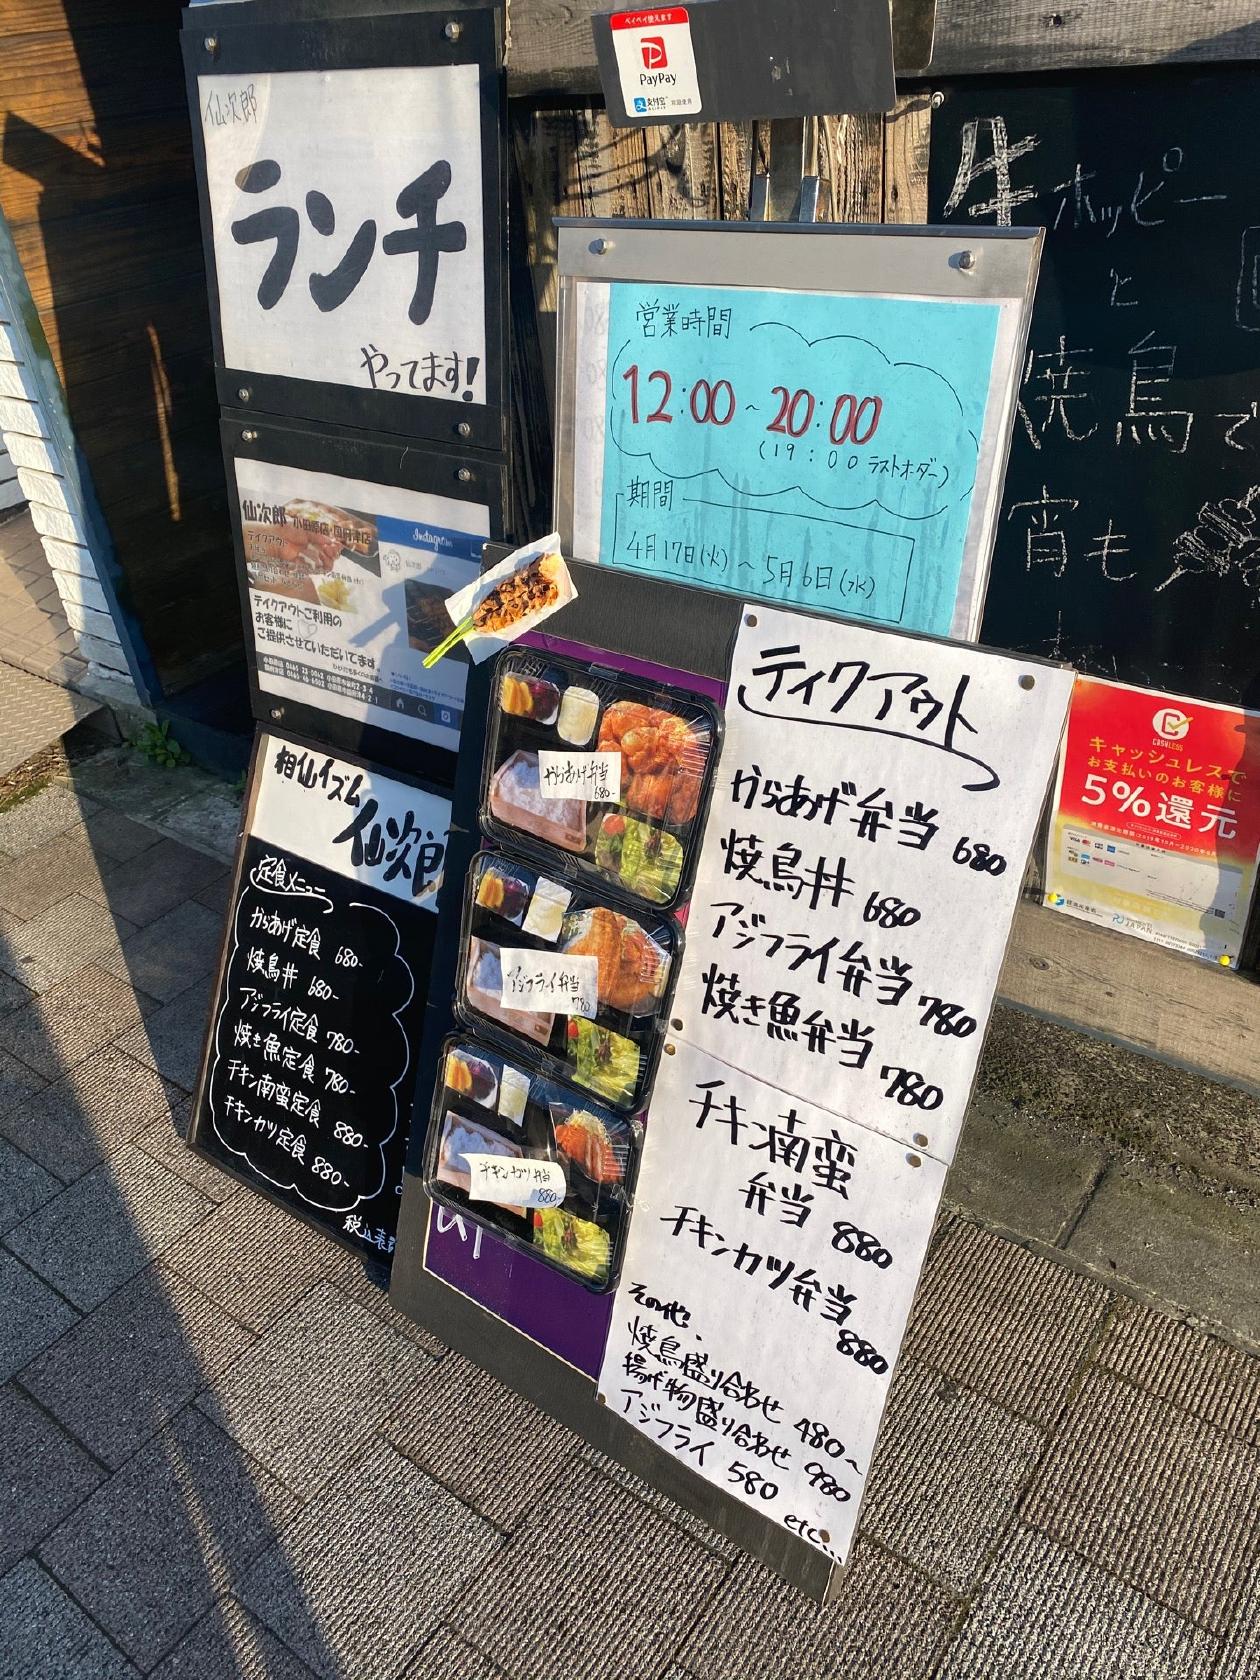 ペイペイ使えます
PayPay
支付宝
仙次郎
ランチ
やってます!
営業時間
12:00~20:00
(19:00ラストオーダー)
期間
4月17日(火)~5月6日(水)
生ホッピー
と
焼鳥で
宵も
仙次郎 小田原店・国府津店
テイクアウト
Instagram
仙次郎
テイクアウトご利用の
お客様に
ご提供させていただいてます
相仙イズム
仙次郎
定食メニュー
からあげ定食 680-
焼鳥丼 680-
アジフライ定食 780-
焼き魚定食 780-
チキン南蛮定食 880-
チキンカツ定食 880-
税込表
からあげ弁当
680-
アジフライ弁当
780
チキンカツ弁当
880-
テイクアウト
からあげ弁当 680
焼鳥丼 680
アジフライ弁当 780
焼き魚弁当 780
チキン南蛮
弁当 880
チキンカツ弁当
880
その他、
焼鳥盛り合わせ 480~
揚げ物盛り合わせ 980
アジフライ 580
etc...
CASHLESS
キャッシュレスで
お支払いのお客様に
5%還元
経済産業省
JAPAN